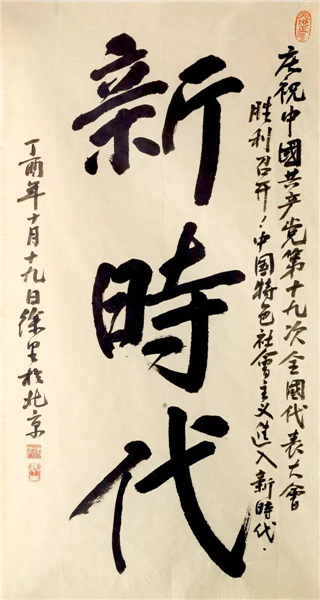 慶祝中國共产党第十九次全國代表大會
胜利召开！中国特色社會主义進入新時代．
新時代
丁酉年十月十九日徐里於北京